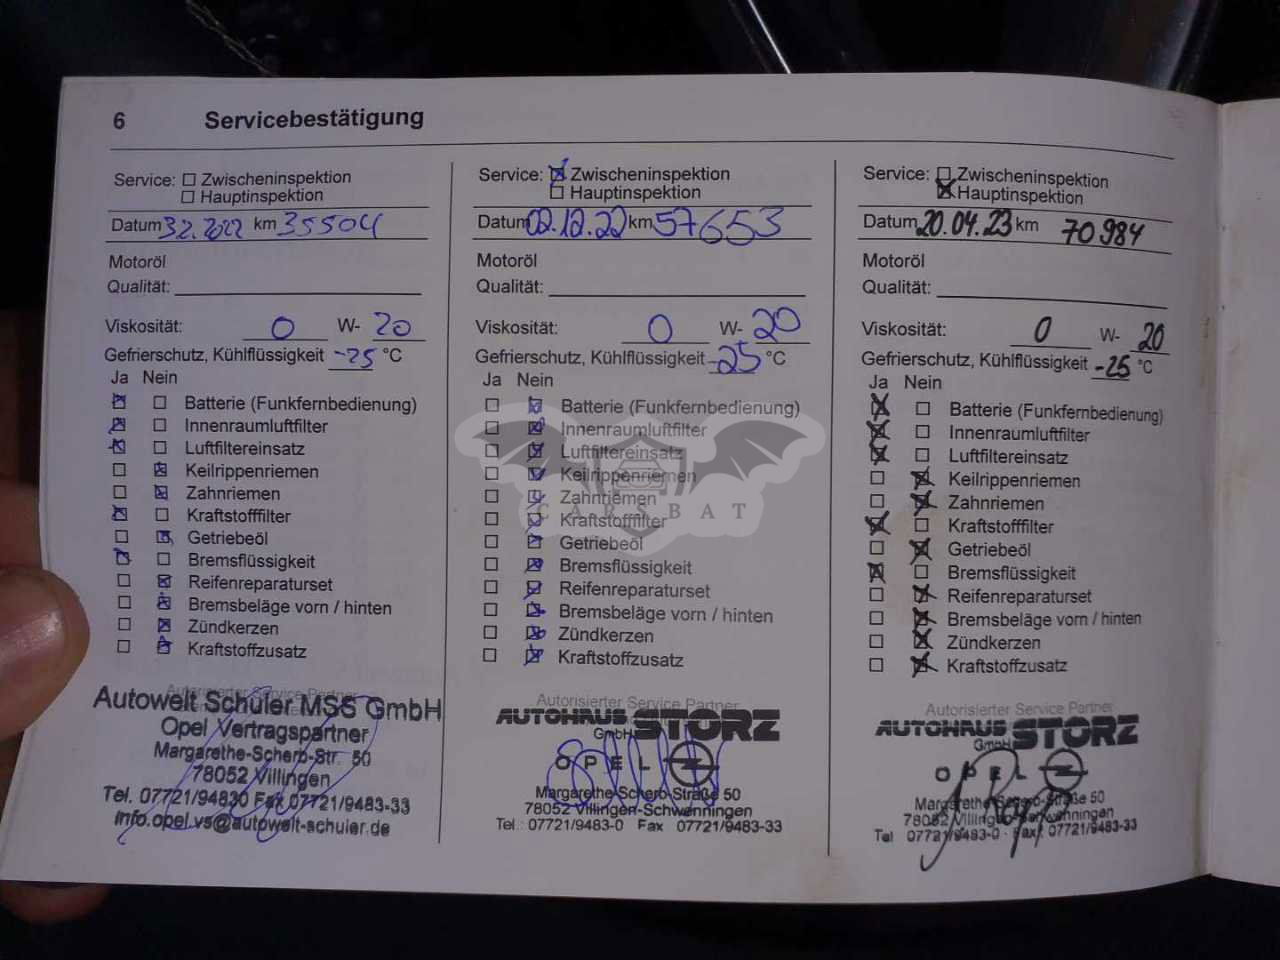 6 Servicebestätigung
Service: Zwischeninspektion
Hauptinspektion
Datum 3.2.2022 km 35504
Motoröl
Qualität:
Viskosität: 0 W- 20
Gefrierschutz, Kühlflüssigkeit -25 °C
Ja Nein
Batterie (Funkfernbedienung)
Innenraumluftfilter
Luftfiltereinsatz
Keilrippenriemen
Zahnriemen
Kraftstofffilter
Getriebeöl
Bremsflüssigkeit
Reifenreparaturset
Bremsbeläge vorn / hinten
Zündkerzen
Kraftstoffzusatz
Autorisierter Service Partner
Autowelt Schuler MSS GmbH
Opel Vertragspartner
Margarethe-Scherb-Str. 50
78052 Villingen
Tel. 07721/94830 Fax 07721/9483-33
info.opel.vs@autowelt-schuler.de
Service: Zwischeninspektion
Hauptinspektion
Datum 02.12.22 km 57653
Motoröl
Qualität:
Viskosität: 0 W- 20
Gefrierschutz, Kühlflüssigkeit -25 °C
Ja Nein
Batterie (Funkfernbedienung)
Innenraumluftfilter
Luftfiltereinsatz
Keilrippenriemen
Zahnriemen
Kraftstofffilter
Getriebeöl
Bremsflüssigkeit
Reifenreparaturset
Bremsbeläge vorn / hinten
Zündkerzen
Kraftstoffzusatz
Autorisierter Service Partner
AUTOHAUS STORZ
GmbH
OPEL
Margarethe-Scherb-Straße 50
78052 Villingen-Schwenningen
Tel.: 07721/9483-0 Fax 07721/9483-33
Service: Zwischeninspektion
Hauptinspektion
Datum 20.04.23 km 70984
Motoröl
Qualität:
Viskosität: 0 W- 20
Gefrierschutz, Kühlflüssigkeit -25 °C
Ja Nein
Batterie (Funkfernbedienung)
Innenraumluftfilter
Luftfiltereinsatz
Keilrippenriemen
Zahnriemen
Kraftstofffilter
Getriebeöl
Bremsflüssigkeit
Reifenreparaturset
Bremsbeläge vorn / hinten
Zündkerzen
Kraftstoffzusatz
Autorisierter Service Partner
AUTOHAUS STORZ
GmbH
OPEL
Margarethe-Scherb-Straße 50
78052 Villingen-Schwenningen
Tel 07721/9483-0 · Fax 07721/9483-33
CARSBAT